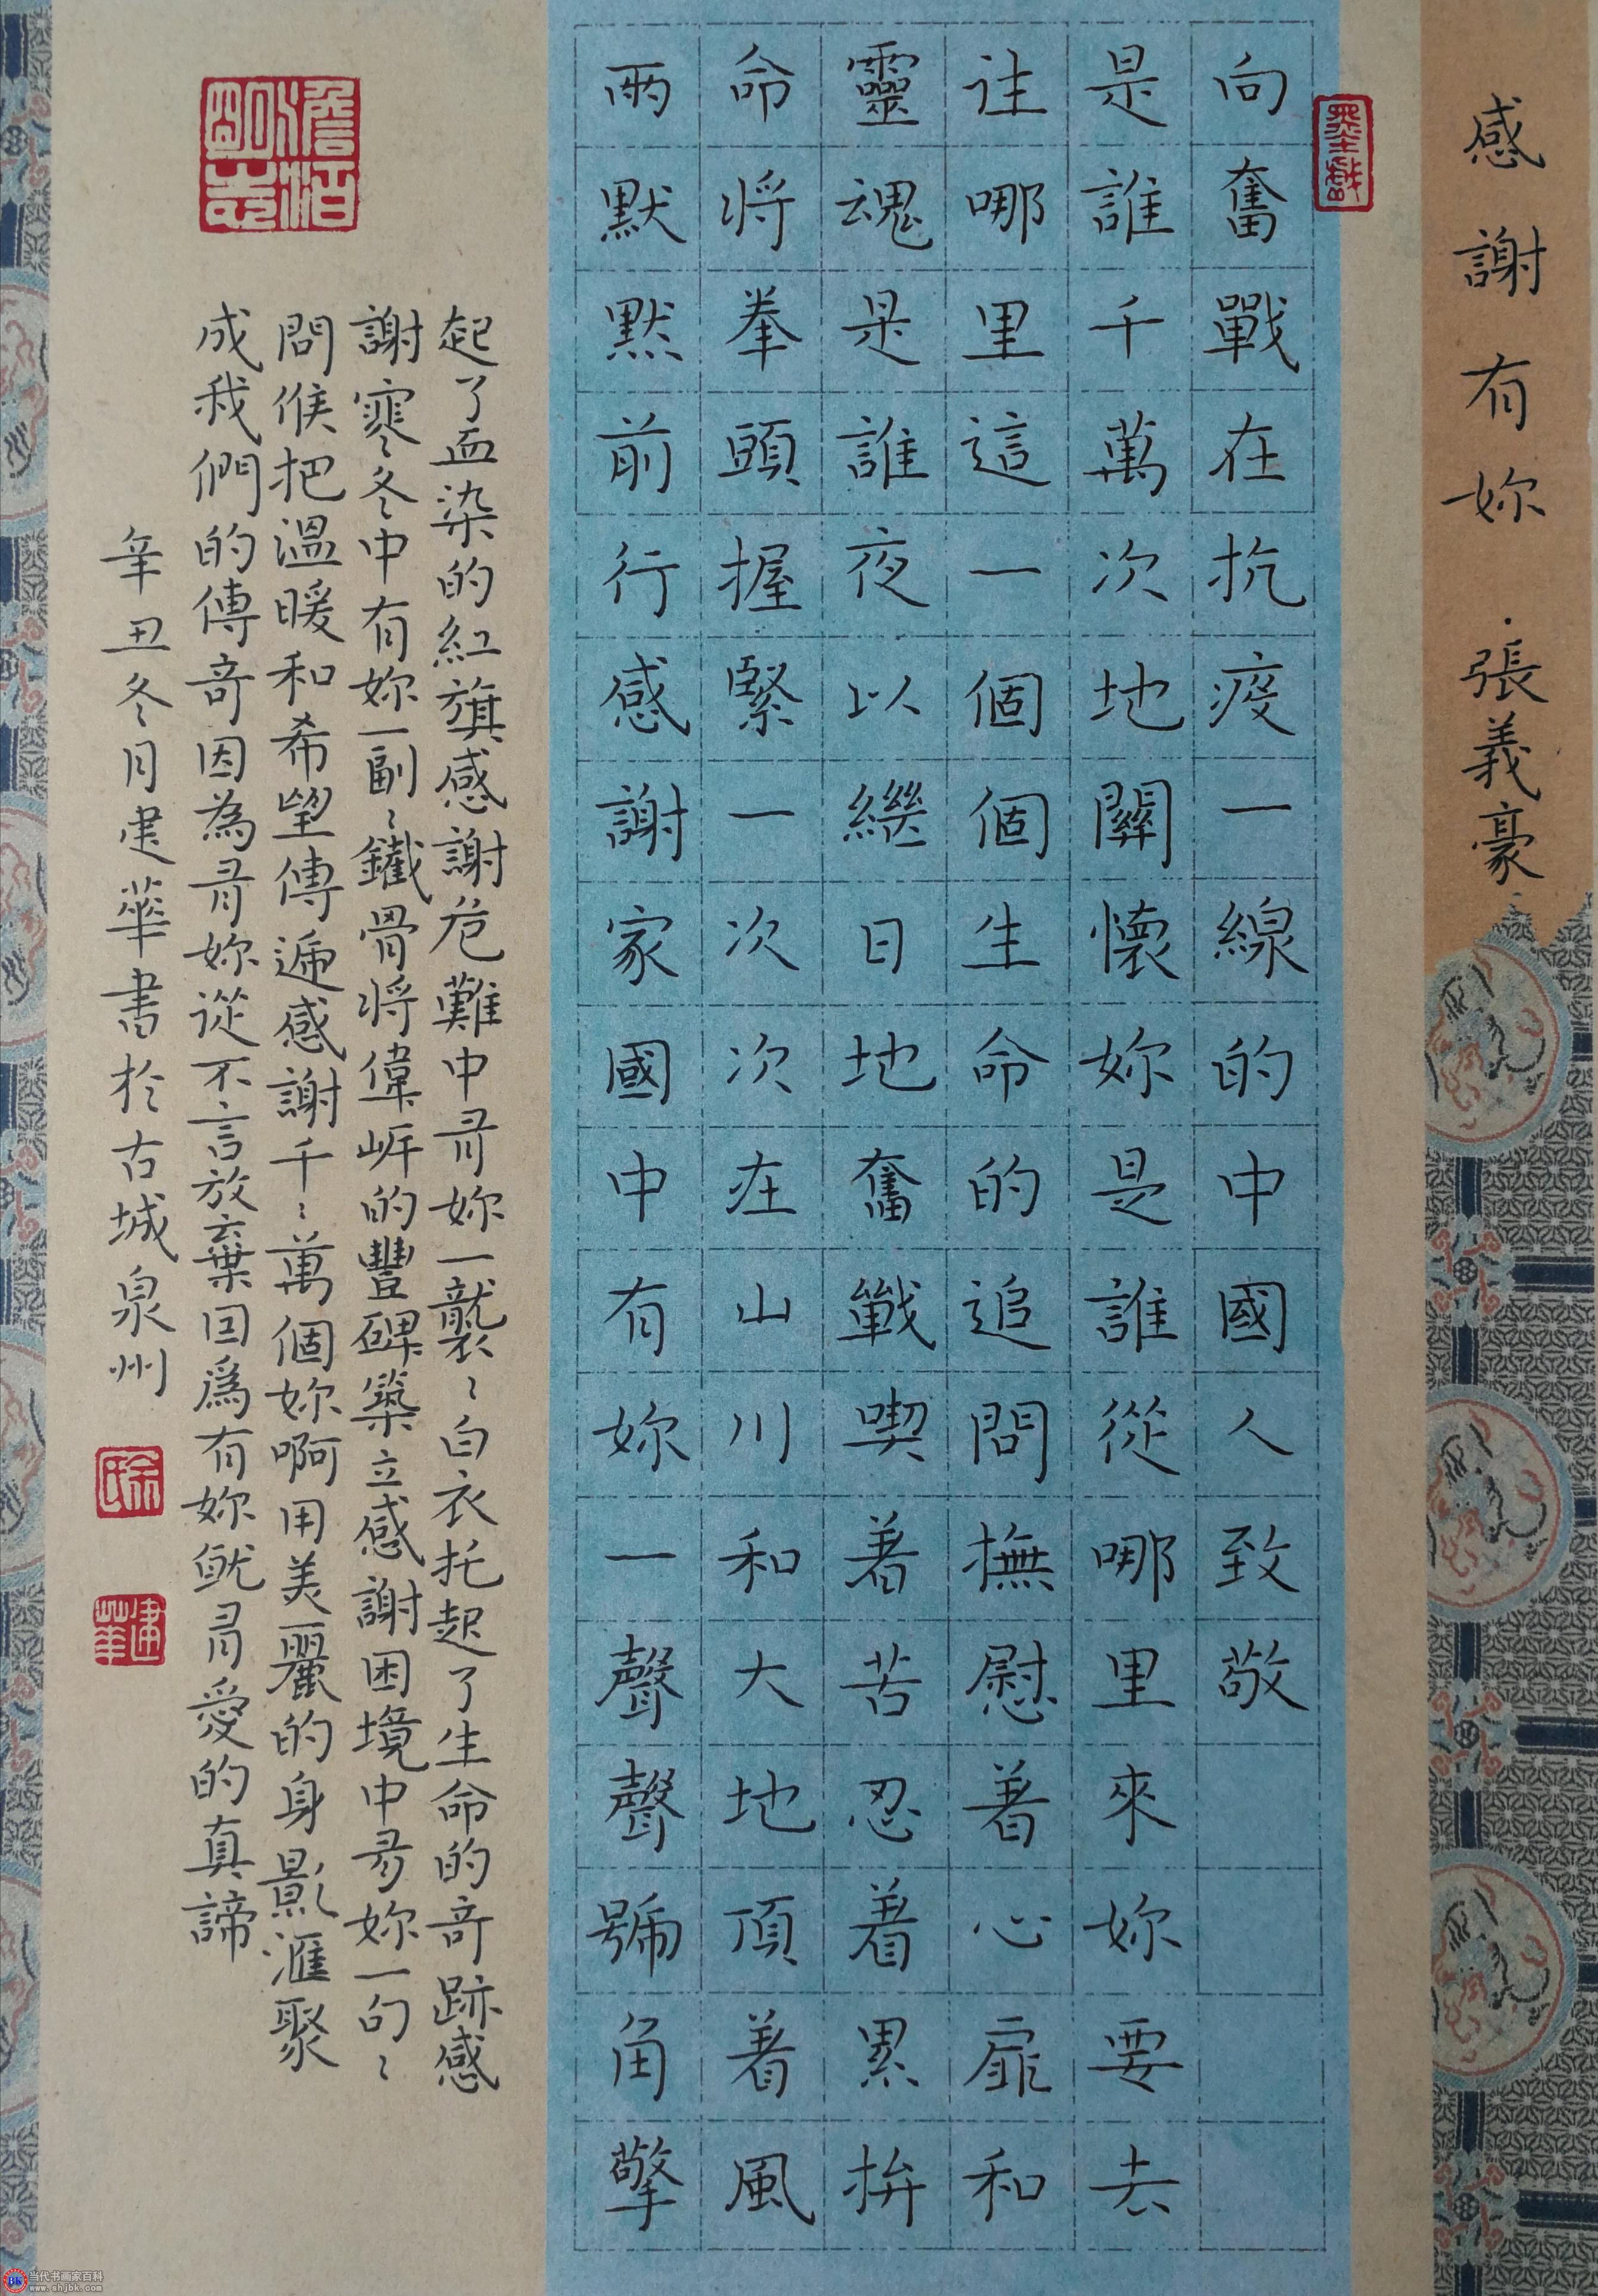 感謝有妳 · 張義豪
墨戲
向奮戰在抗疫一線的中國人致敬
是誰千萬次地關懷妳是誰從哪里來妳要去
往哪里這一個個生命的追問撫慰着心扉和
靈魂是誰夜以繼日地奮戰喫着苦忍着累拚
命将拳頭握緊一次次在山川和大地頂着風
雨默默前行感謝家國中有妳一聲聲號角擎
起了血染的紅旗感謝危難中有妳一襲〻白衣托起了生命的奇跡感
謝寒冬中有妳一副〻鐵骨将偉岸的豐碑築立感謝困境中有妳一句〻
問候把溫暖和希望傳遞感謝千〻萬個妳啊用美麗的身影滙聚
成我們的傳奇因為有妳從不言放棄因爲有妳就有愛的真諦
辛丑冬月建華書於古城泉州
澹泊明志
徐氏
建華
当代书画家百科
www.shjbk.com